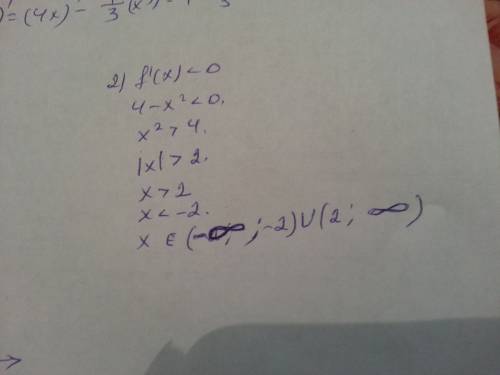 )' = (4x)' - 1/3 (x³)'
2) f'(x) < 0
4 - x² < 0.
x² > 4.
|x| > 2.
x > 2
x < -2.
x ∈ (-∞; -2) U (2; ∞)